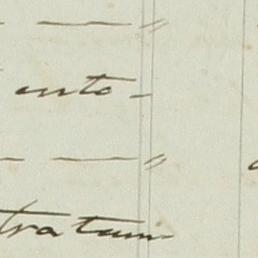 — — "
ento-
— — "
tratum